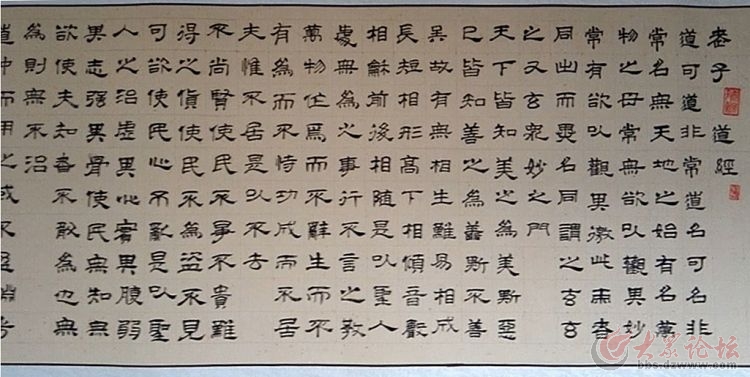 老子 道經
道可道非常道名可名非
常名無天地之始有名萬
物之母常無欲以觀其妙
常有欲以觀其徼此兩者
同出而異名同謂之玄玄
之又玄眾妙之門
天下皆知美之為美斯惡
已皆知善之為善斯不善
矣故有無相生難易相成
長短相形高下相傾音聲
相龢前後相隨是以聖人
處無為之事行不言之教
萬物作焉而不辭生而不
有為而不恃功成而不居
夫惟不居是以不去
不尚賢使民不爭不貴難
得之貨使民不為盜不見
可欲使民心不亂是以聖
人之治虛其心實其腹弱
其志強其骨使民無知無
欲使夫知者不敢為也無
為則無不治
道沖而用之或不盈淵兮
大众论坛
bbs.dzwww.com